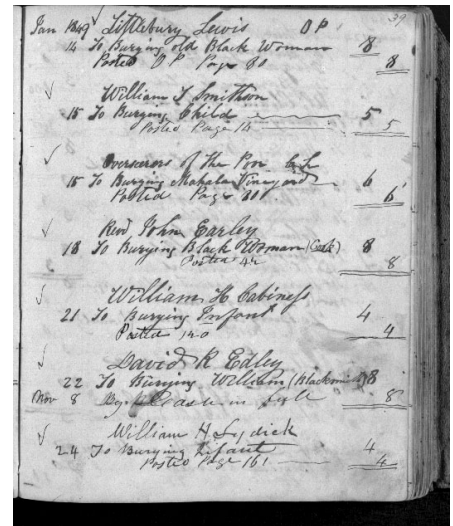 39
Jan 1849 Littlebury Lewis O P
14 To Burying old Black Woman 8
Posted O P Page 80 8
William T Smithson
15 To Burying Child 5
Posted Page 14 5
Overseers of the Poor
15 To Burying Mahala Vineyard 6
Posted Page 80 6
Revd John Earley
18 To Burying Black Woman 8
Posted 44 8
William H Cabiness
21 To Burying Infant 4
Posted 140 4
David R Edley
22 To Burying William (Blacksmith) 8
Nov 8 By Cash in full 8
William H Lydick
24 To Burying Infant 4
Posted Page 161 4